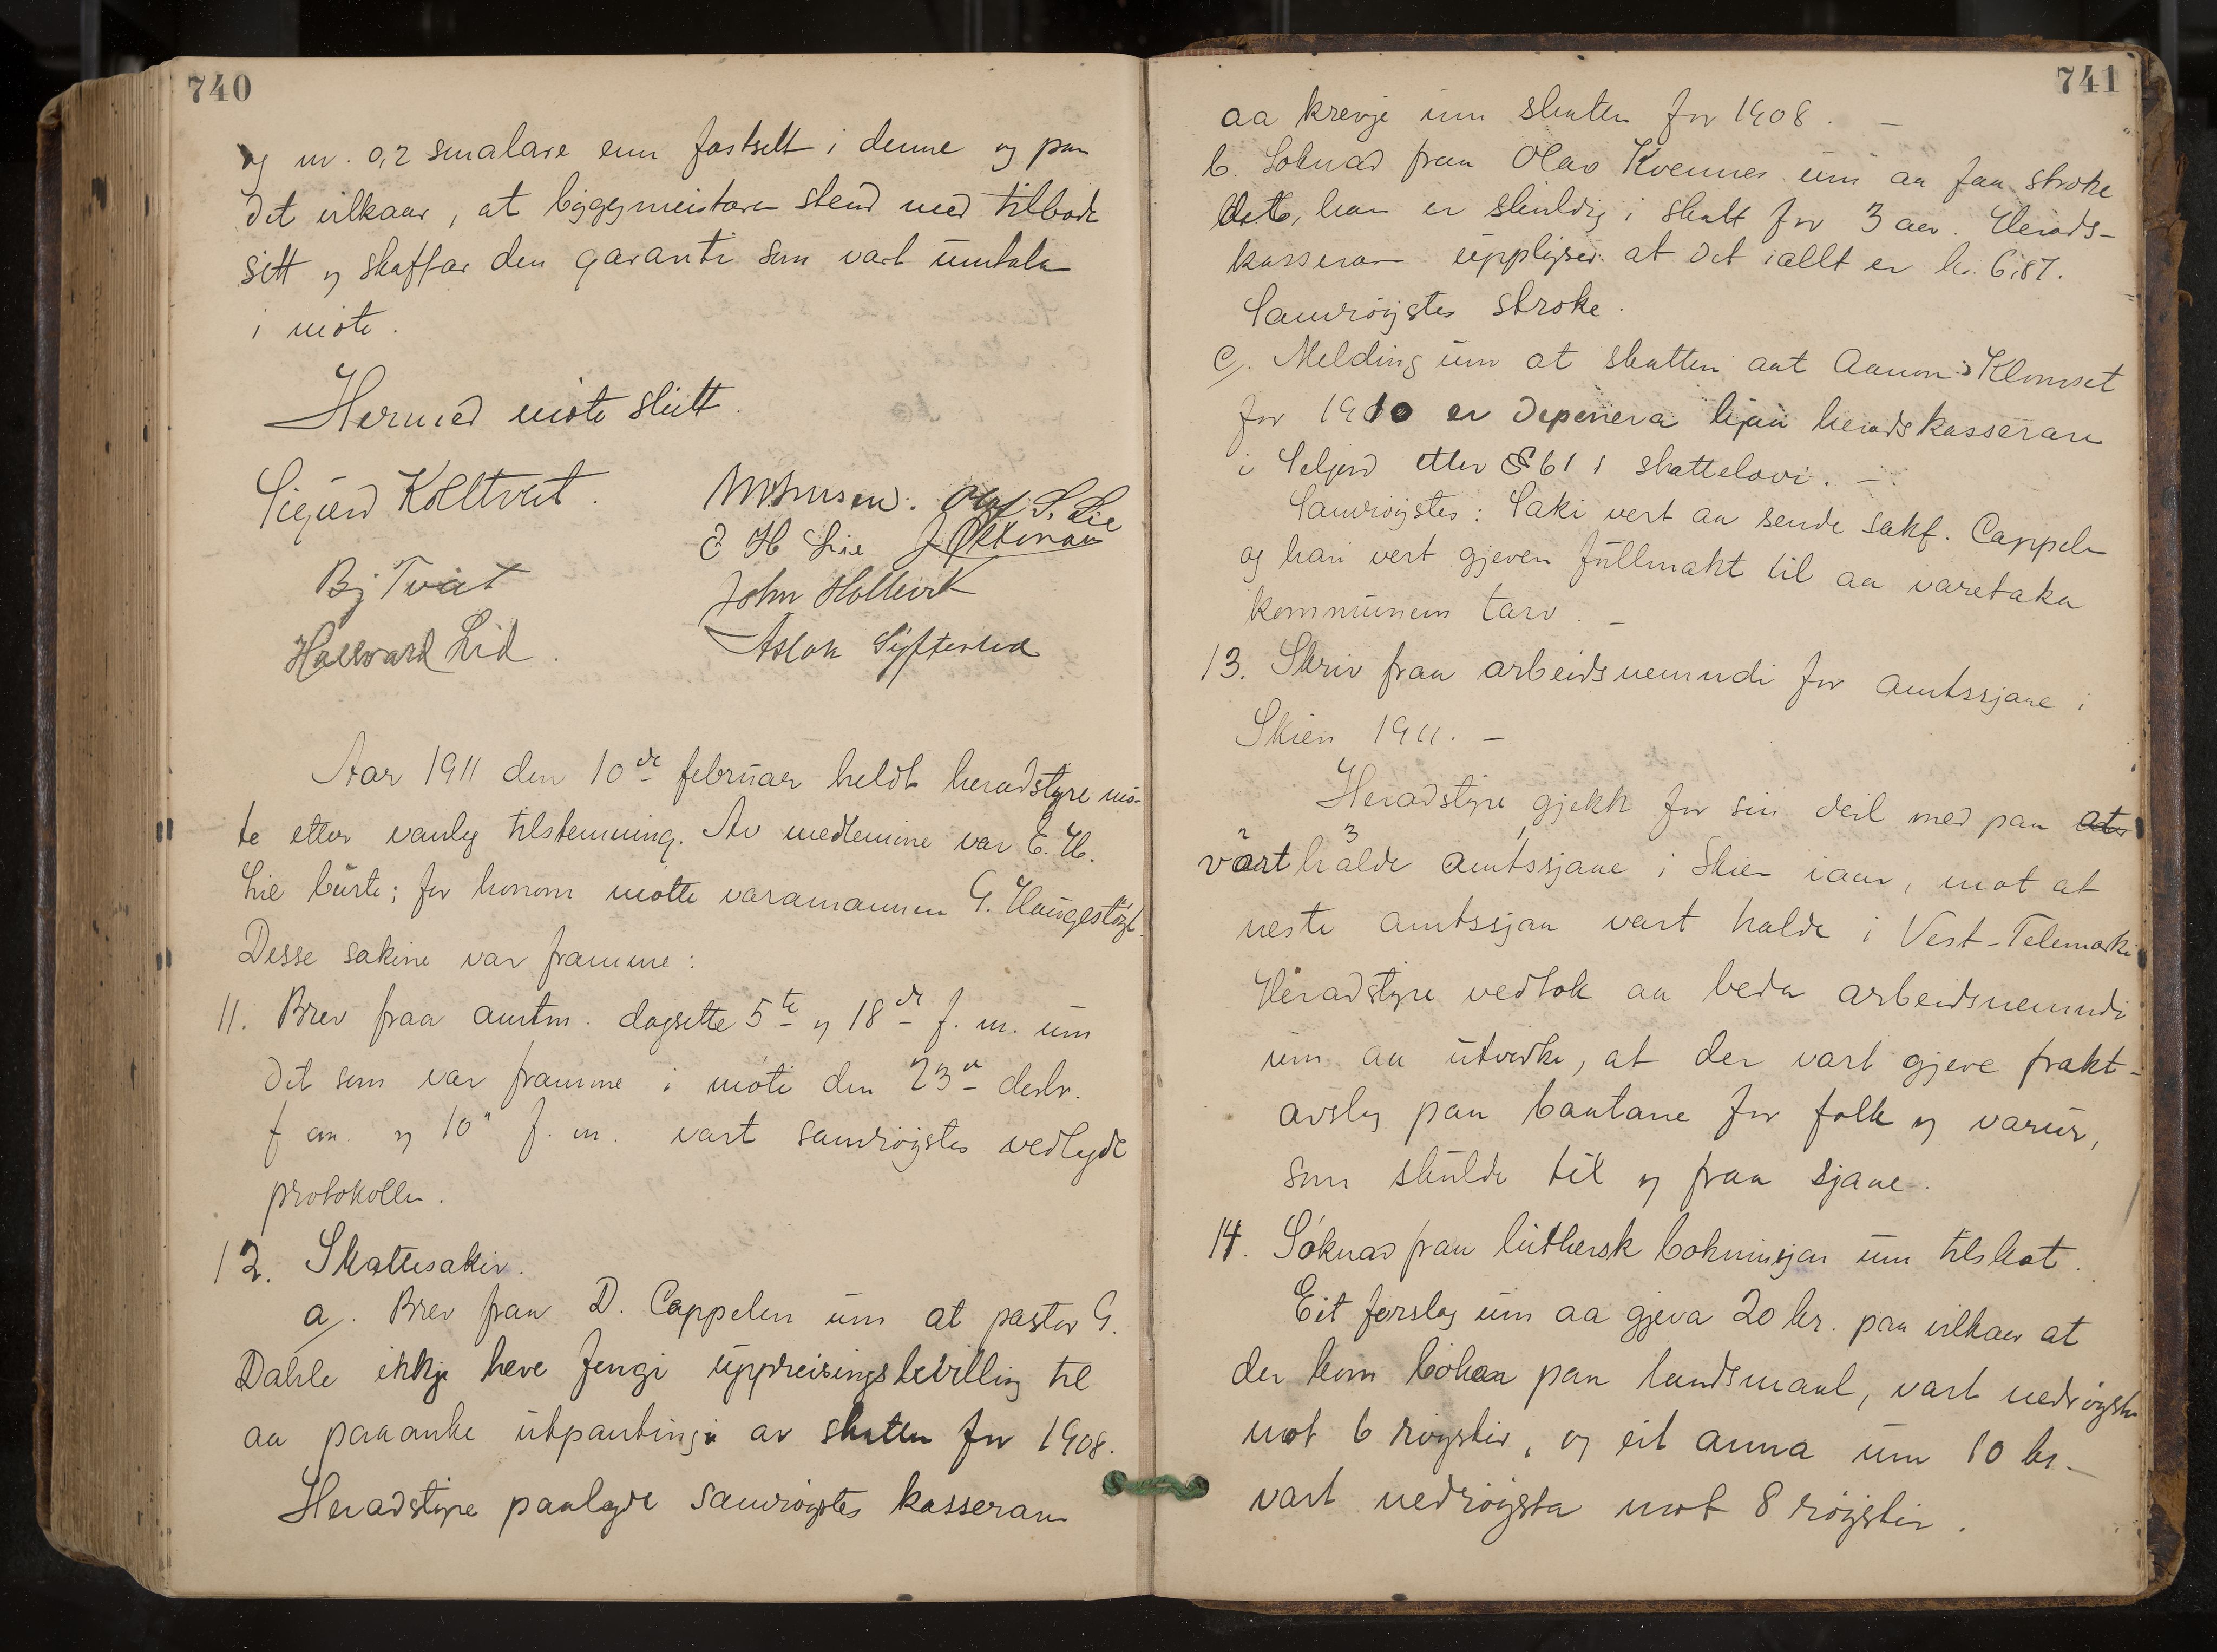 740
og m. 0,2 smalare enn fastsett i denne og paa
det vilkaar, at byggmeistaren stend ved tilbode
sitt og skaffar den garanti som vart umtala
i møte.
Hermed møte slutt.
Sigurd Kolltveit.
Olaf S. Lie
E H Lie J Økkenhaug
Bj Tveit
John Holtevik
Hallvard Lid.
Aslak
Aar 1911 den 10de februar heldt heradstyre mø-
te etter vanleg tilstemning. Av medlemine var E. H.
Lie burte; for honom møtte varamannen G. Haugestøyl.
Desse sakine var framme:
11. Brev fraa amtm. dagsette 5te og 18de f. m. um
det som var framme i møte den 23de desbr.
f. aa. og 10" f. m. vart samrøystes vedteke
protokollen.
12. Skattesakir.
a/. Brev fraa D. Cappelen um at pastor G.
Dahle ikkje have fengi uppreisingsbevilling til
aa paaanke utpantingi av skatten for 1908.
Heradstyre paalagde samrøystes kasseraren
741
aa krevje inn skatten for 1908. —
b. Soknad fraa Olav Kvennes um aa faa stroke
det, han er skuldig i skatt for 3 aar. Herads-
kasseraren upplyser at det iallt er kr. 6,87.
Samrøystes stroke.
c/. Melding um at skatten aat Aanon Klomset
for 1910 er deponera hjaa heradskasseraren
i Seljord etter § 61 i skattelovi. —
Samrøystes: Saki vert aa sende sakf. Cappelen
og han vert gjeven fullmakt til aa vareta­ka
kommunens tarv. —
13. Skriv fraa arbeidsnemndi for amtssjaae i
Skien 1911. —
Heradstyre gjekk for sin deil med paa at
2 3
vart halde amtssjaae i Skien iaar, mot at
neste amtssjaa vart halde i Vest-Telemarki
Heradstyre vedtok aa beda arbeidsnemndi
um aa utverke, at der vart gjeve frakt-
avslag paa bantane for folk og varur,
som skulde til og fraa sjaae.
14. Søknad fraa luthersk bokmisjon um tilskot.
Eit forslag um aa gjeva 20 kr. paa vilkaar at
der kom bøker paa landsmaal, vart nedrøysta
mot 6 røyster, og eit anna um 10 kr. —
vart nedrøysta mot 8 røyster.